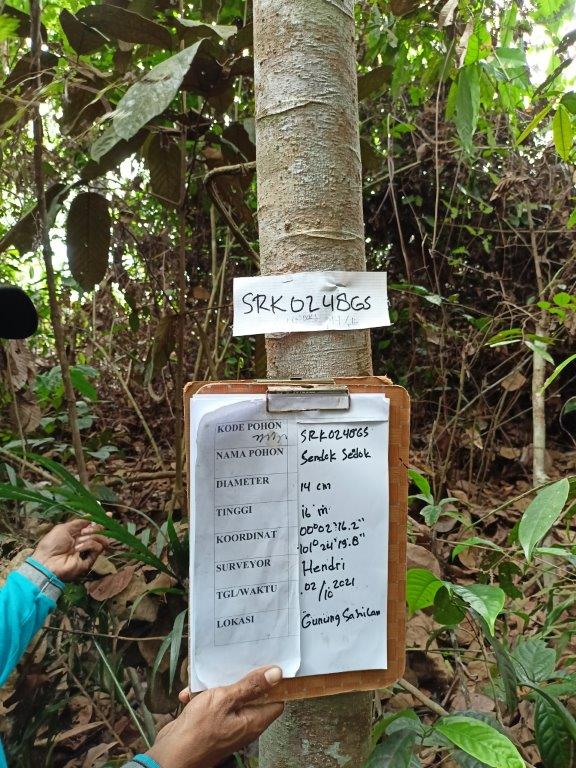 SRK0248GS
KODE POHON SRK0248GS
NAMA POHON Sendok Sedok
DIAMETER 14 cm
TINGGI 16 m
KOORDINAT 00°02'16.2"
101°24'19.8"
SURVEYOR Hendri
TGL/WAKTU 02/10 2021
LOKASI Gunung Sahilan